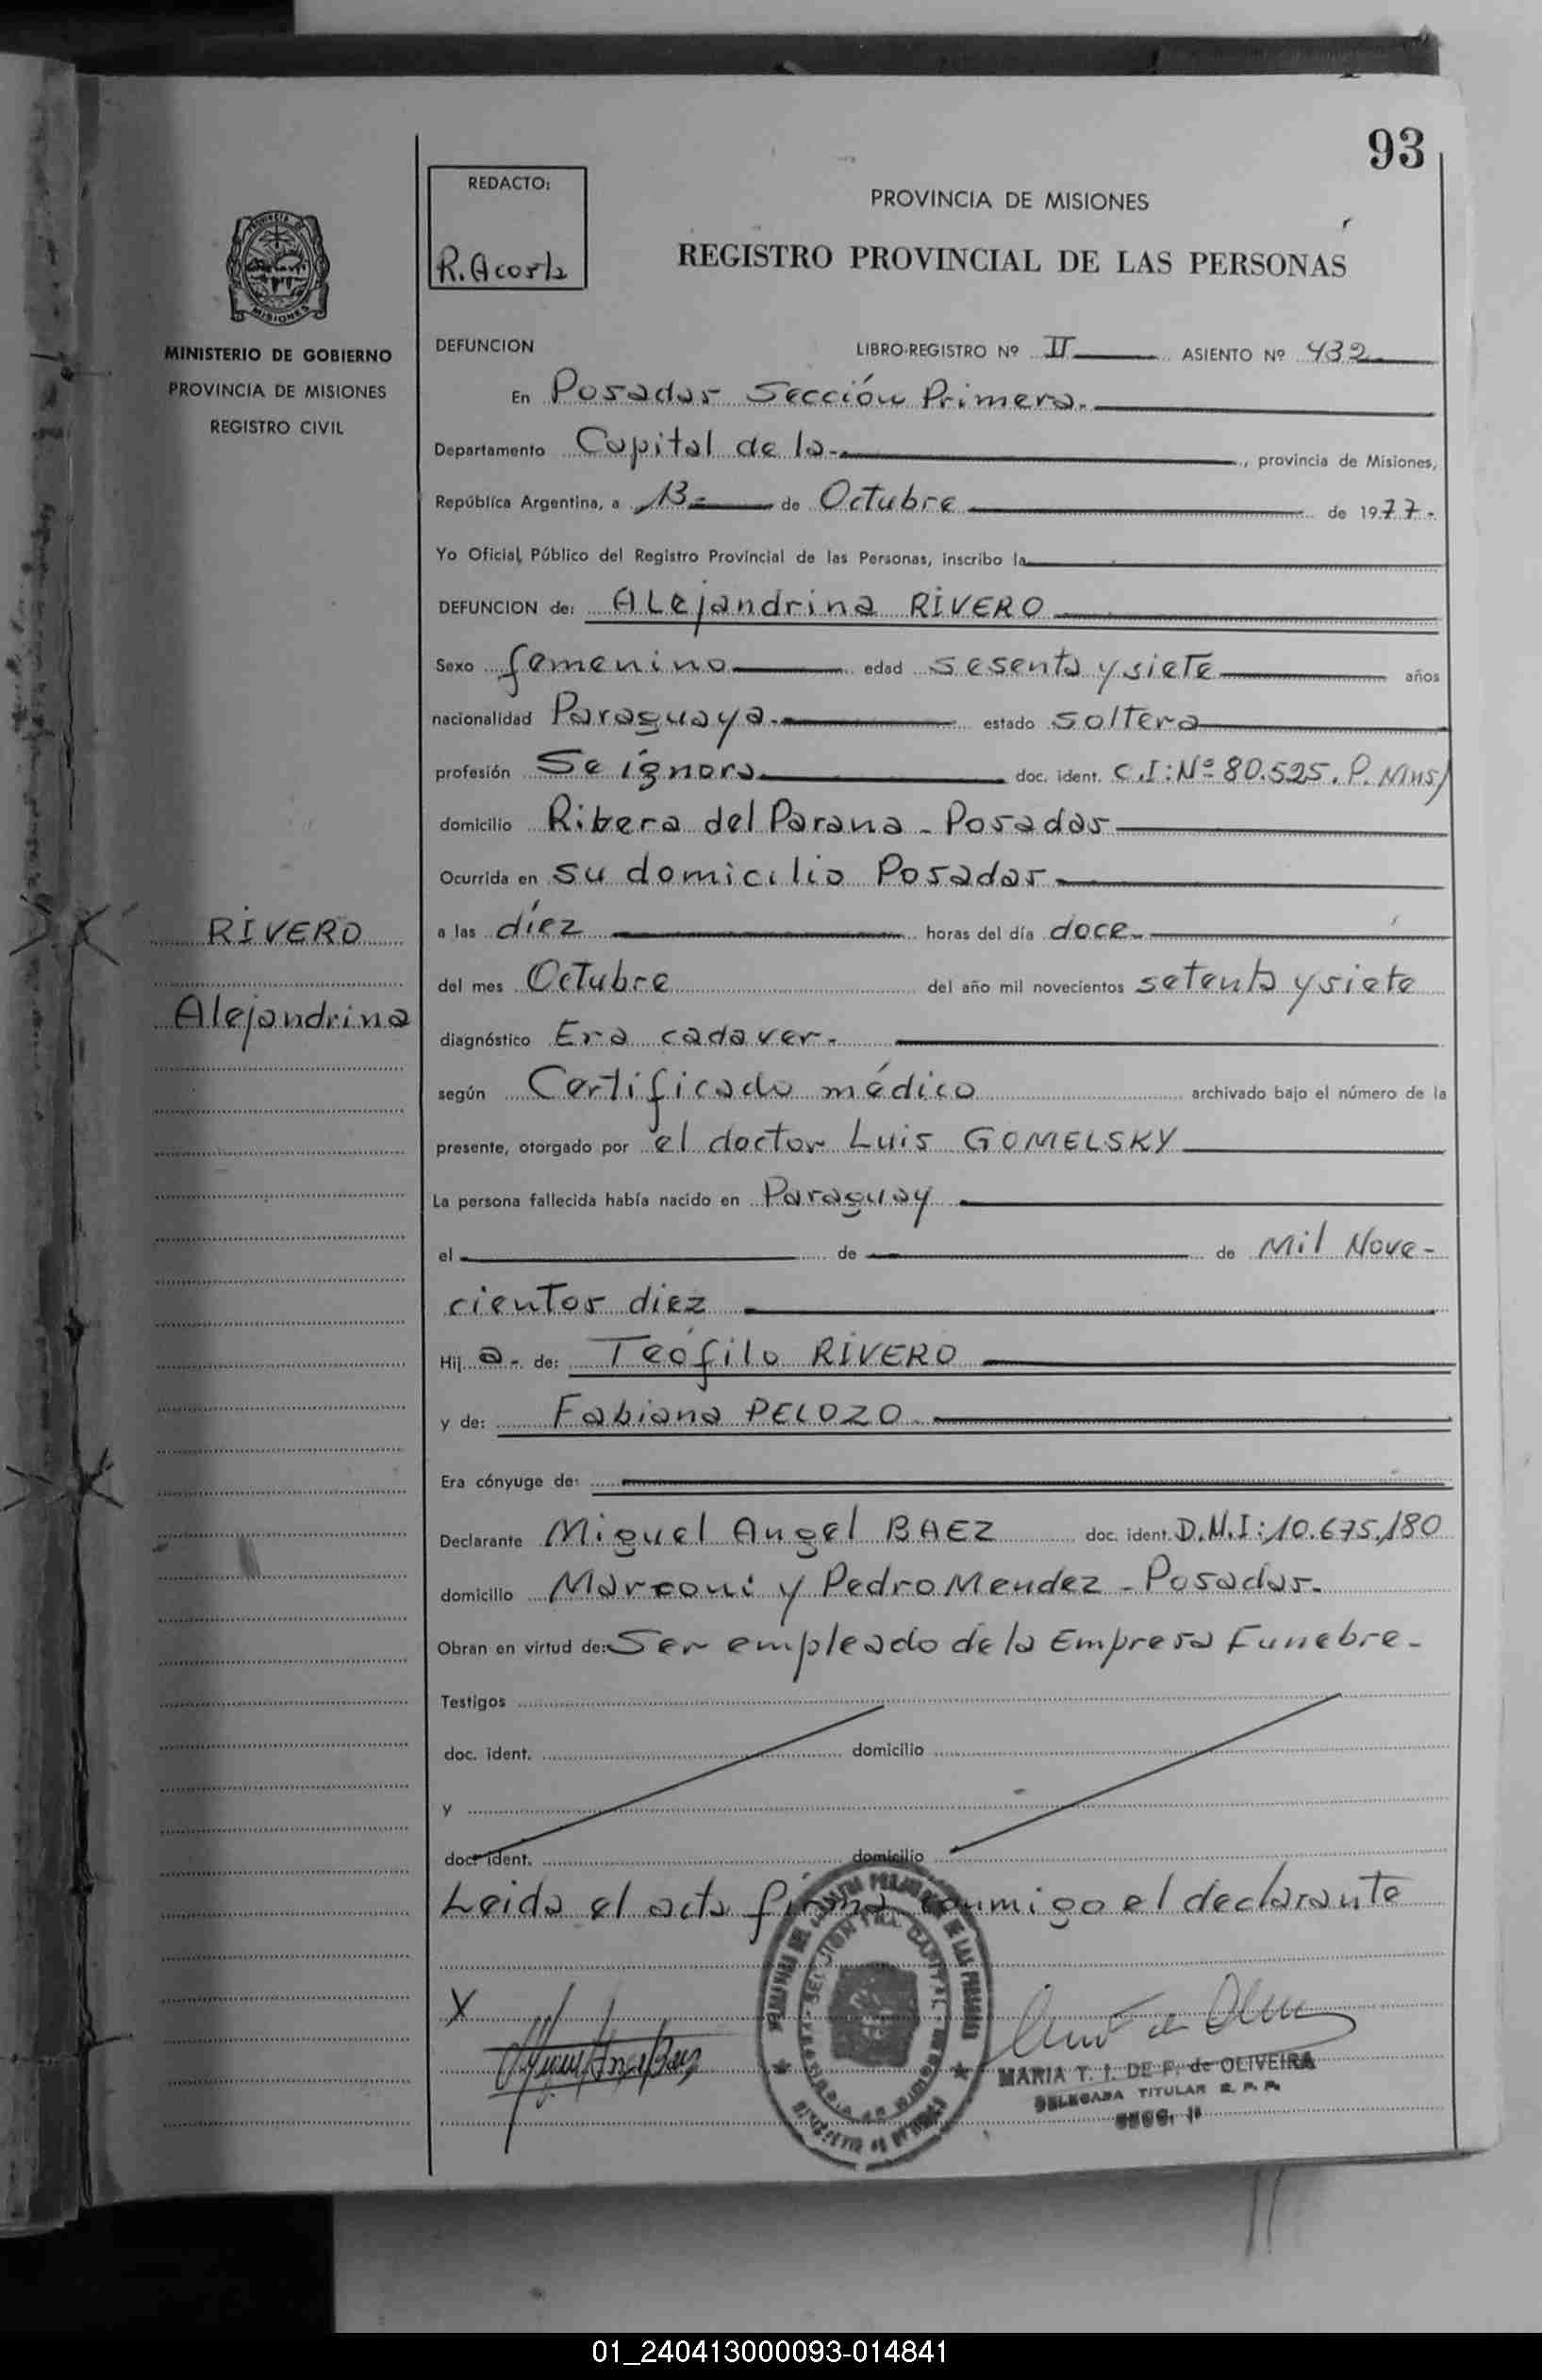 93
REDACTO:
R. Acosta
PROVINCIA DE MISIONES
REGISTRO PROVINCIAL DE LAS PERSONAS
PROVINCIA DE
MISIONES
MINISTERIO DE GOBIERNO
PROVINCIA DE MISIONES
REGISTRO CIVIL
RIVERO
Alejandrina
DEFUNCION LIBRO-REGISTRO Nº II ASIENTO Nº 432
En Posadas Sección Primera.
Departamento Capital de la , provincia de Misiones,
República Argentina, a 13 de Octubre de 1977.
Yo Oficial Público del Registro Provincial de las Personas, inscribo la
DEFUNCION de: ALejandrina RIVERO
Sexo femenino edad sesenta y siete años
nacionalidad Paraguaya. estado soltera
profesión Se ignora doc. ident. C.I: Nº 80.525. P. Mnes/
domicilio Ribera del Parana - Posadas
Ocurrida en su domicilio Posadas
a las díez horas del día doce
del mes Octubre del año mil novecientos setenta y siete
diagnóstico Era cadaver.
según Certificado médico archivado bajo el número de la
presente, otorgado por el doctor Luis GOMELSKY
La persona fallecida había nacido en Paraguay
el de de Mil Nove-
cientos diez
Hij a. de: Teófilo RIVERO
y de: Fabiana PELOZO
Era cónyuge de:
Declarante Miguel Angel BAEZ doc. ident. D.N.I: 10.675.180
domicilio Marconi y Pedro Mendez - Posadas.
Obran en virtud de: Ser empleado de la Empresa Funebre.
Testigos
doc. ident. domicilio
y
doc. ident. domicilio
Leida el acta firma conmigo el declarante
X
Miguel Angel Baez
MARIA T. I. DE F. de OLIVEIRA
DELEGADA TITULAR R. P. P.
SECC. 1ª
01_240413000093-014841